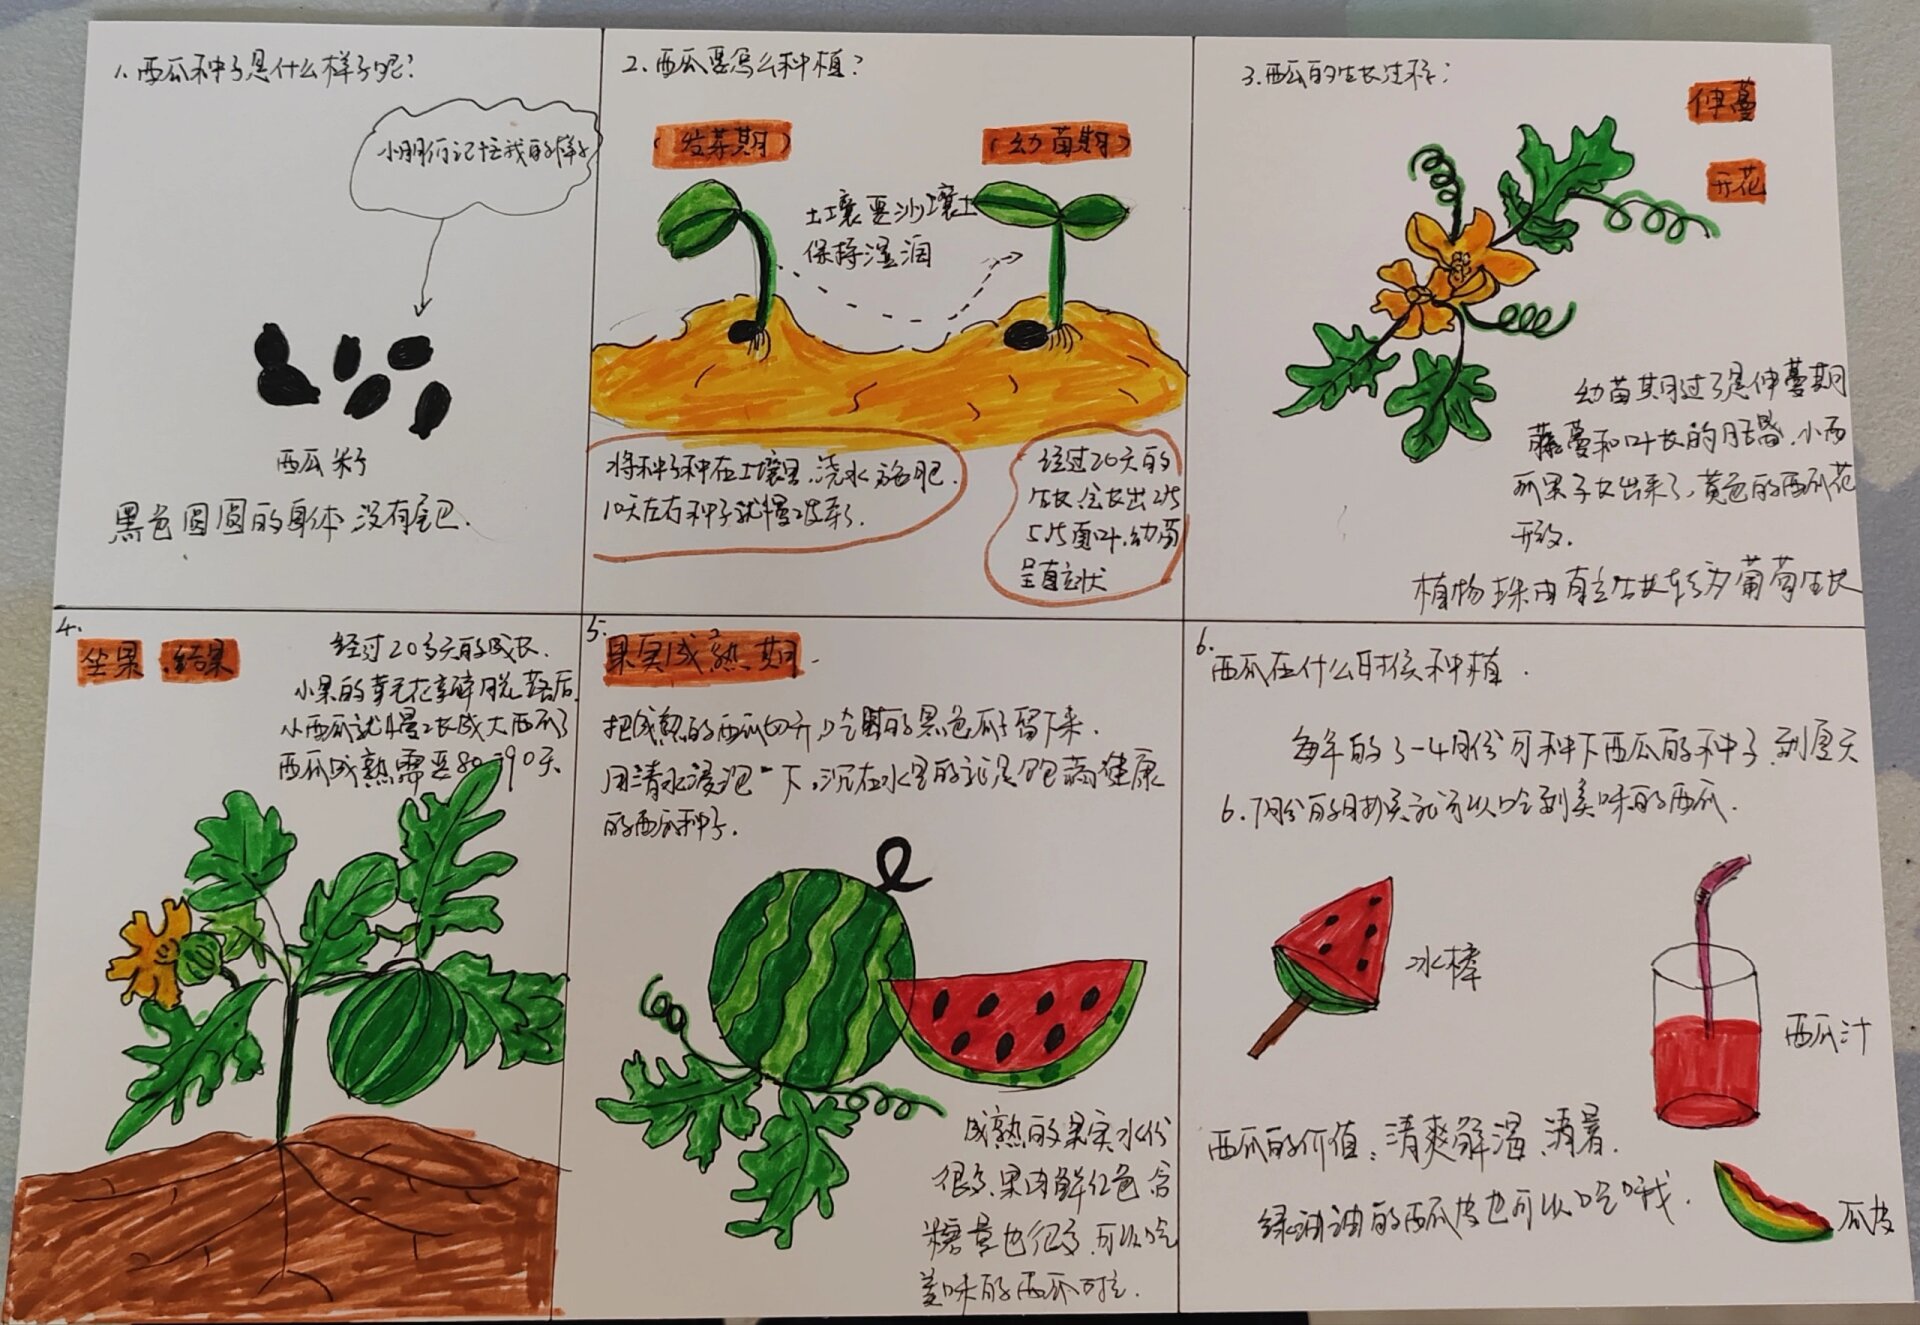 1、西瓜种子是什么样子呢？
小朋们记住我的样子
西瓜籽
黑色圆圆的身体没有尾巴.
2、西瓜要怎么种植？
（发芽期）
（幼苗期）
土壤要沙壤土
保持湿润
将种子种在土壤里，浇水施肥.
10天左右种子就慢慢发芽了.
经过20天的
生长，会长出2片
5片真叶，幼苗
呈直立状
3、西瓜的生长过程：
伸蔓
开花
幼苗期过了是伸蔓期
藤蔓和叶长的
小西
瓜果子长出来了，黄色的西瓜花
开放.
植物 由直立生长转为葡萄生长
4.
坐果 结果
经过20多天的成长.
小果的 花瓣脱落后
小西瓜就慢慢长成大西瓜了
西瓜成熟需要80-90天
5.
果实成熟期.
把成熟的西瓜切开，吃 的黑色瓜子留下来.
用清水浸泡一下，沉在水里的就是饱满健康
的西瓜种子.
成熟的果实水份
很多，果肉鲜红色含
糖量也很多，可以吃
美味的西瓜啦.
6.
西瓜在什么时候种植.
每年的3-4月份可种下西瓜的种子，到夏天
6.7月份的时候就可以吃到美味的西瓜.
冰棒
西瓜汁
西瓜的价值：清爽解渴 消暑.
绿油油的西瓜皮也可以吃哦.
瓜皮